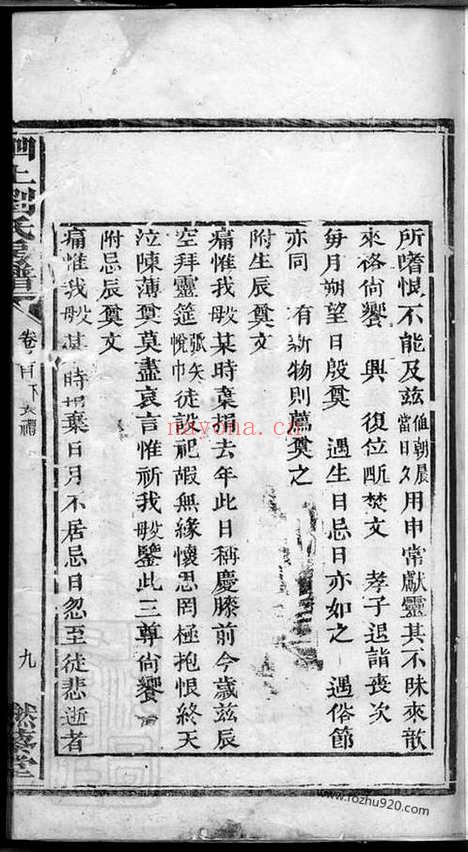 所嗜恨不能及兹值朝晨當日夕用申常獻靈其不昧來歆
來格尙饗　興　復位　焚文　孝子退詣喪次
每月朔望日殷奠　遇生日忌日亦如之　遇俗節
亦同　有新物則薦奠之
附生辰奠文
痛惟我某時棄捐去年此日稱慶膝前今歲兹辰
空拜靈筵張矢帨巾徒設祀嘏無緣懷思罔極抱恨終天
泣陳薄奠莫盡哀言惟祈我鑒此三尊尙饗
附忌辰奠文
痛惟我某時捐棄日月不居忌日忽至徒悲逝者
氏
卷
九
nayona.cn
www.rozhu920.com